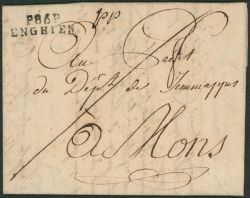 P86P
ENGHIEN
pp
Au Préfet
du Dépt de Jemmappes
à Mons